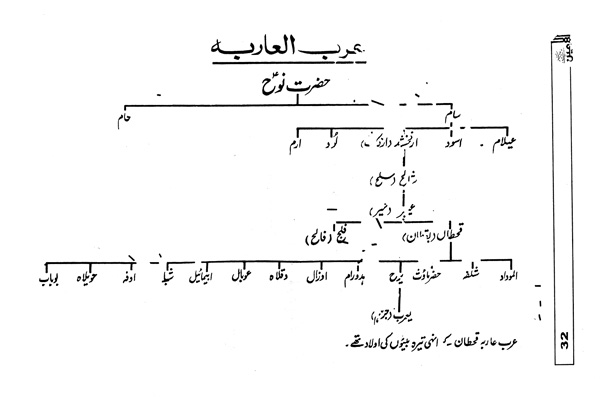 عرب العاربہ
حضرت نوحؑ
سام حام
عیلام اسود ارفخشد لُد ارم
شالح (سلیح)
عیبر (خیبر)
قحطان فلیج (فالح)
الموداد شلفہ حضرماؤت یرح ہدورام اوزال دقلاہ عوبال ابیمائیل شبا اوفہ حویلاہ یوباب
یعرب
عرب عاربہ قحطان کے انہی تیرہ بیٹوں کی اولاد تھے۔
32